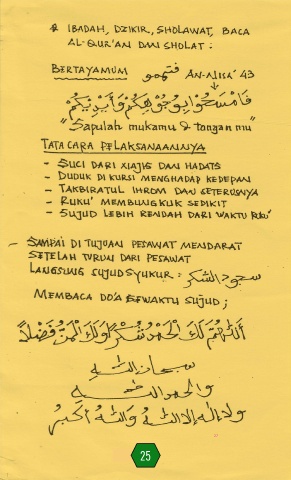 * IBADAH, DZIKIR, SHOLAWAT, BACA
AL-QUR'AN DAN SHOLAT :
BERTAYAMUM فتيممو AN-NISA' 43
فَامْسَحُوْا بِوُجُوْهِكُمْ وَأَيْدِيْكُمْ
"Sapulah mukamu & tangan mu"
TATA CARA PELAKSANAANNYA
- SUCI DARI NAJIS DAN HADATS
- DUDUK DI KURSI MENGHADAP KEDEPAN
- TAKBIRATUL IHROM DAN SETERUSNYA
- RUKU' MEMBUNGKUK SEDIKIT
- SUJUD LEBIH RENDAH DARI WAKTU RUKU'
- SAMPAI DI TUJUAN PESAWAT MENDARAT
SETELAH TURUN DARI PESAWAT
LANGSUNG SUJUD SYUKUR : سجود الشكر
MEMBACA DO'A SEWAKTU SUJUD ;
اَللّٰهُمَّ لَكَ الْحَمْدُ شُكْرًا وَلَكَ الْمَنُّ فَضْلًا
سبحان الله
والحمد لله
ولا إله إلا الله والله أكبر
25